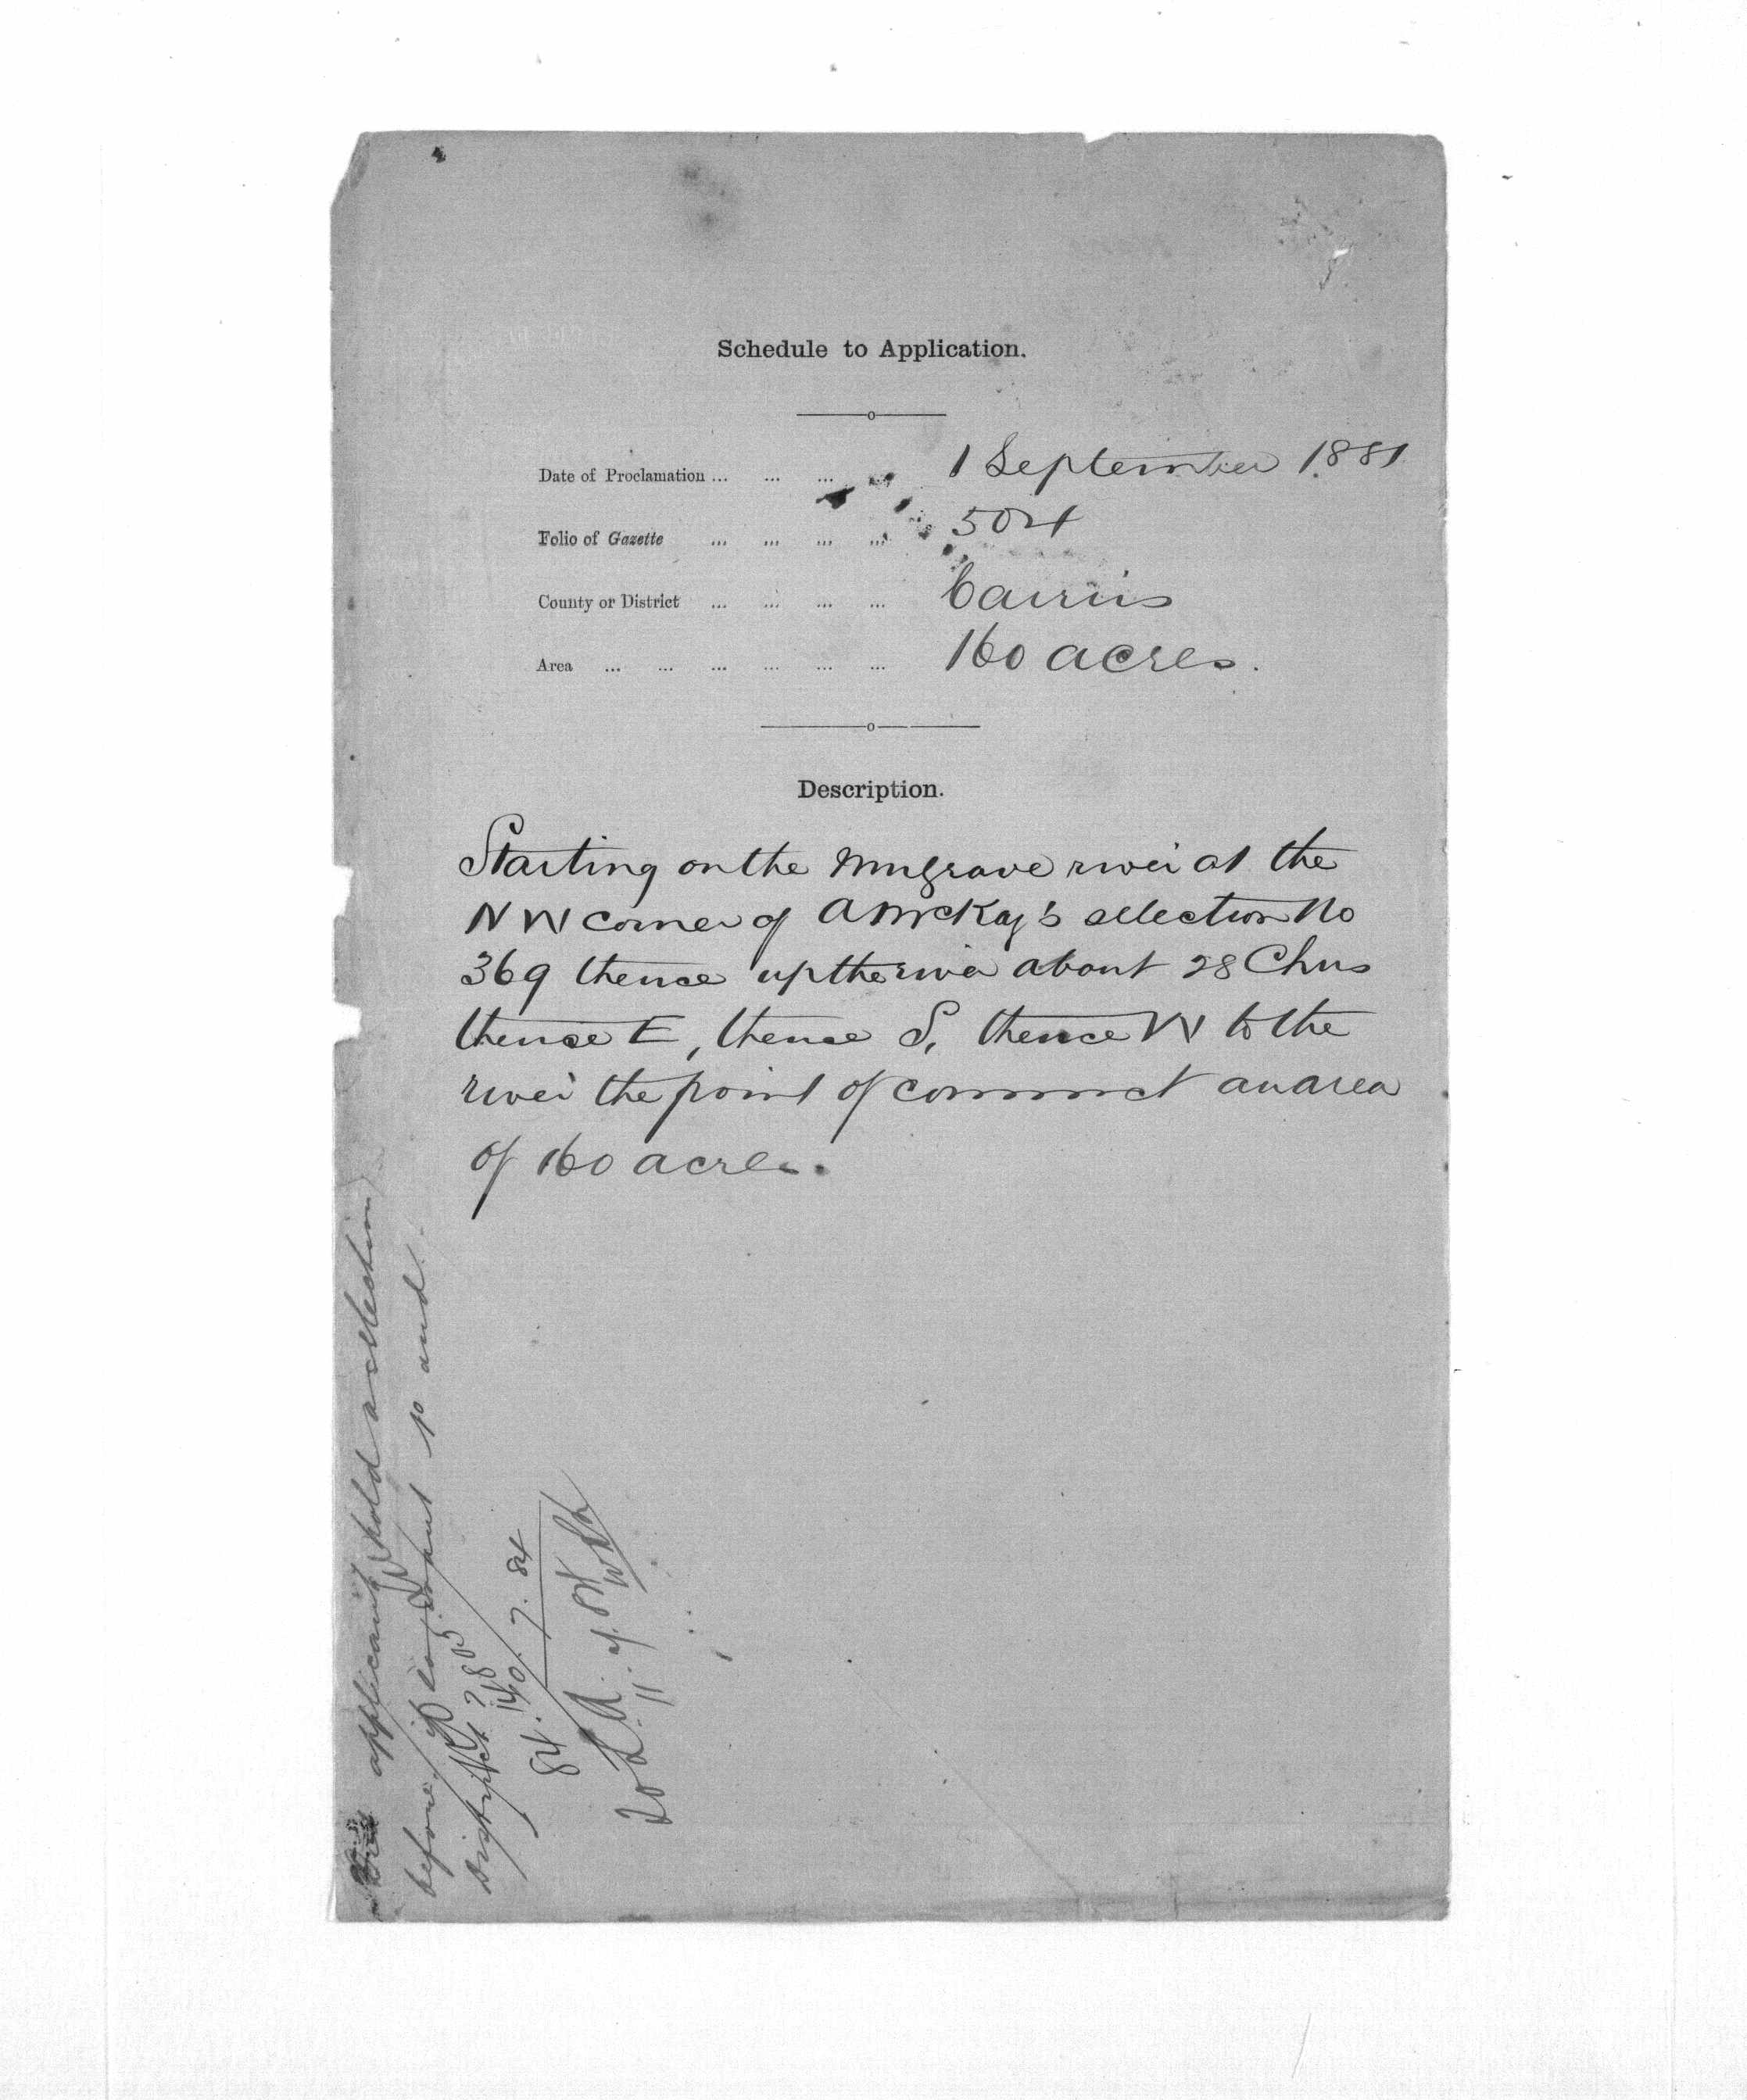 Schedule to Application.
Date of Proclamation ... ... ... ... 1 September 1881
Folio of Gazette ... ... ... ... 504
County or District ... ... ... ... Cairns
Area ... ... ... ... ... ... 160 acres.
Description.
Starting on the Mulgrave river at the
NW corner of A McKay's selection No
369 thence up the river about 28 Chns
thence E, thence S, thence W to the
river the point of commnct an area
of 160 acres.
applicant hold a selection
before, if so, what No and
District?
84.140. 7. 84